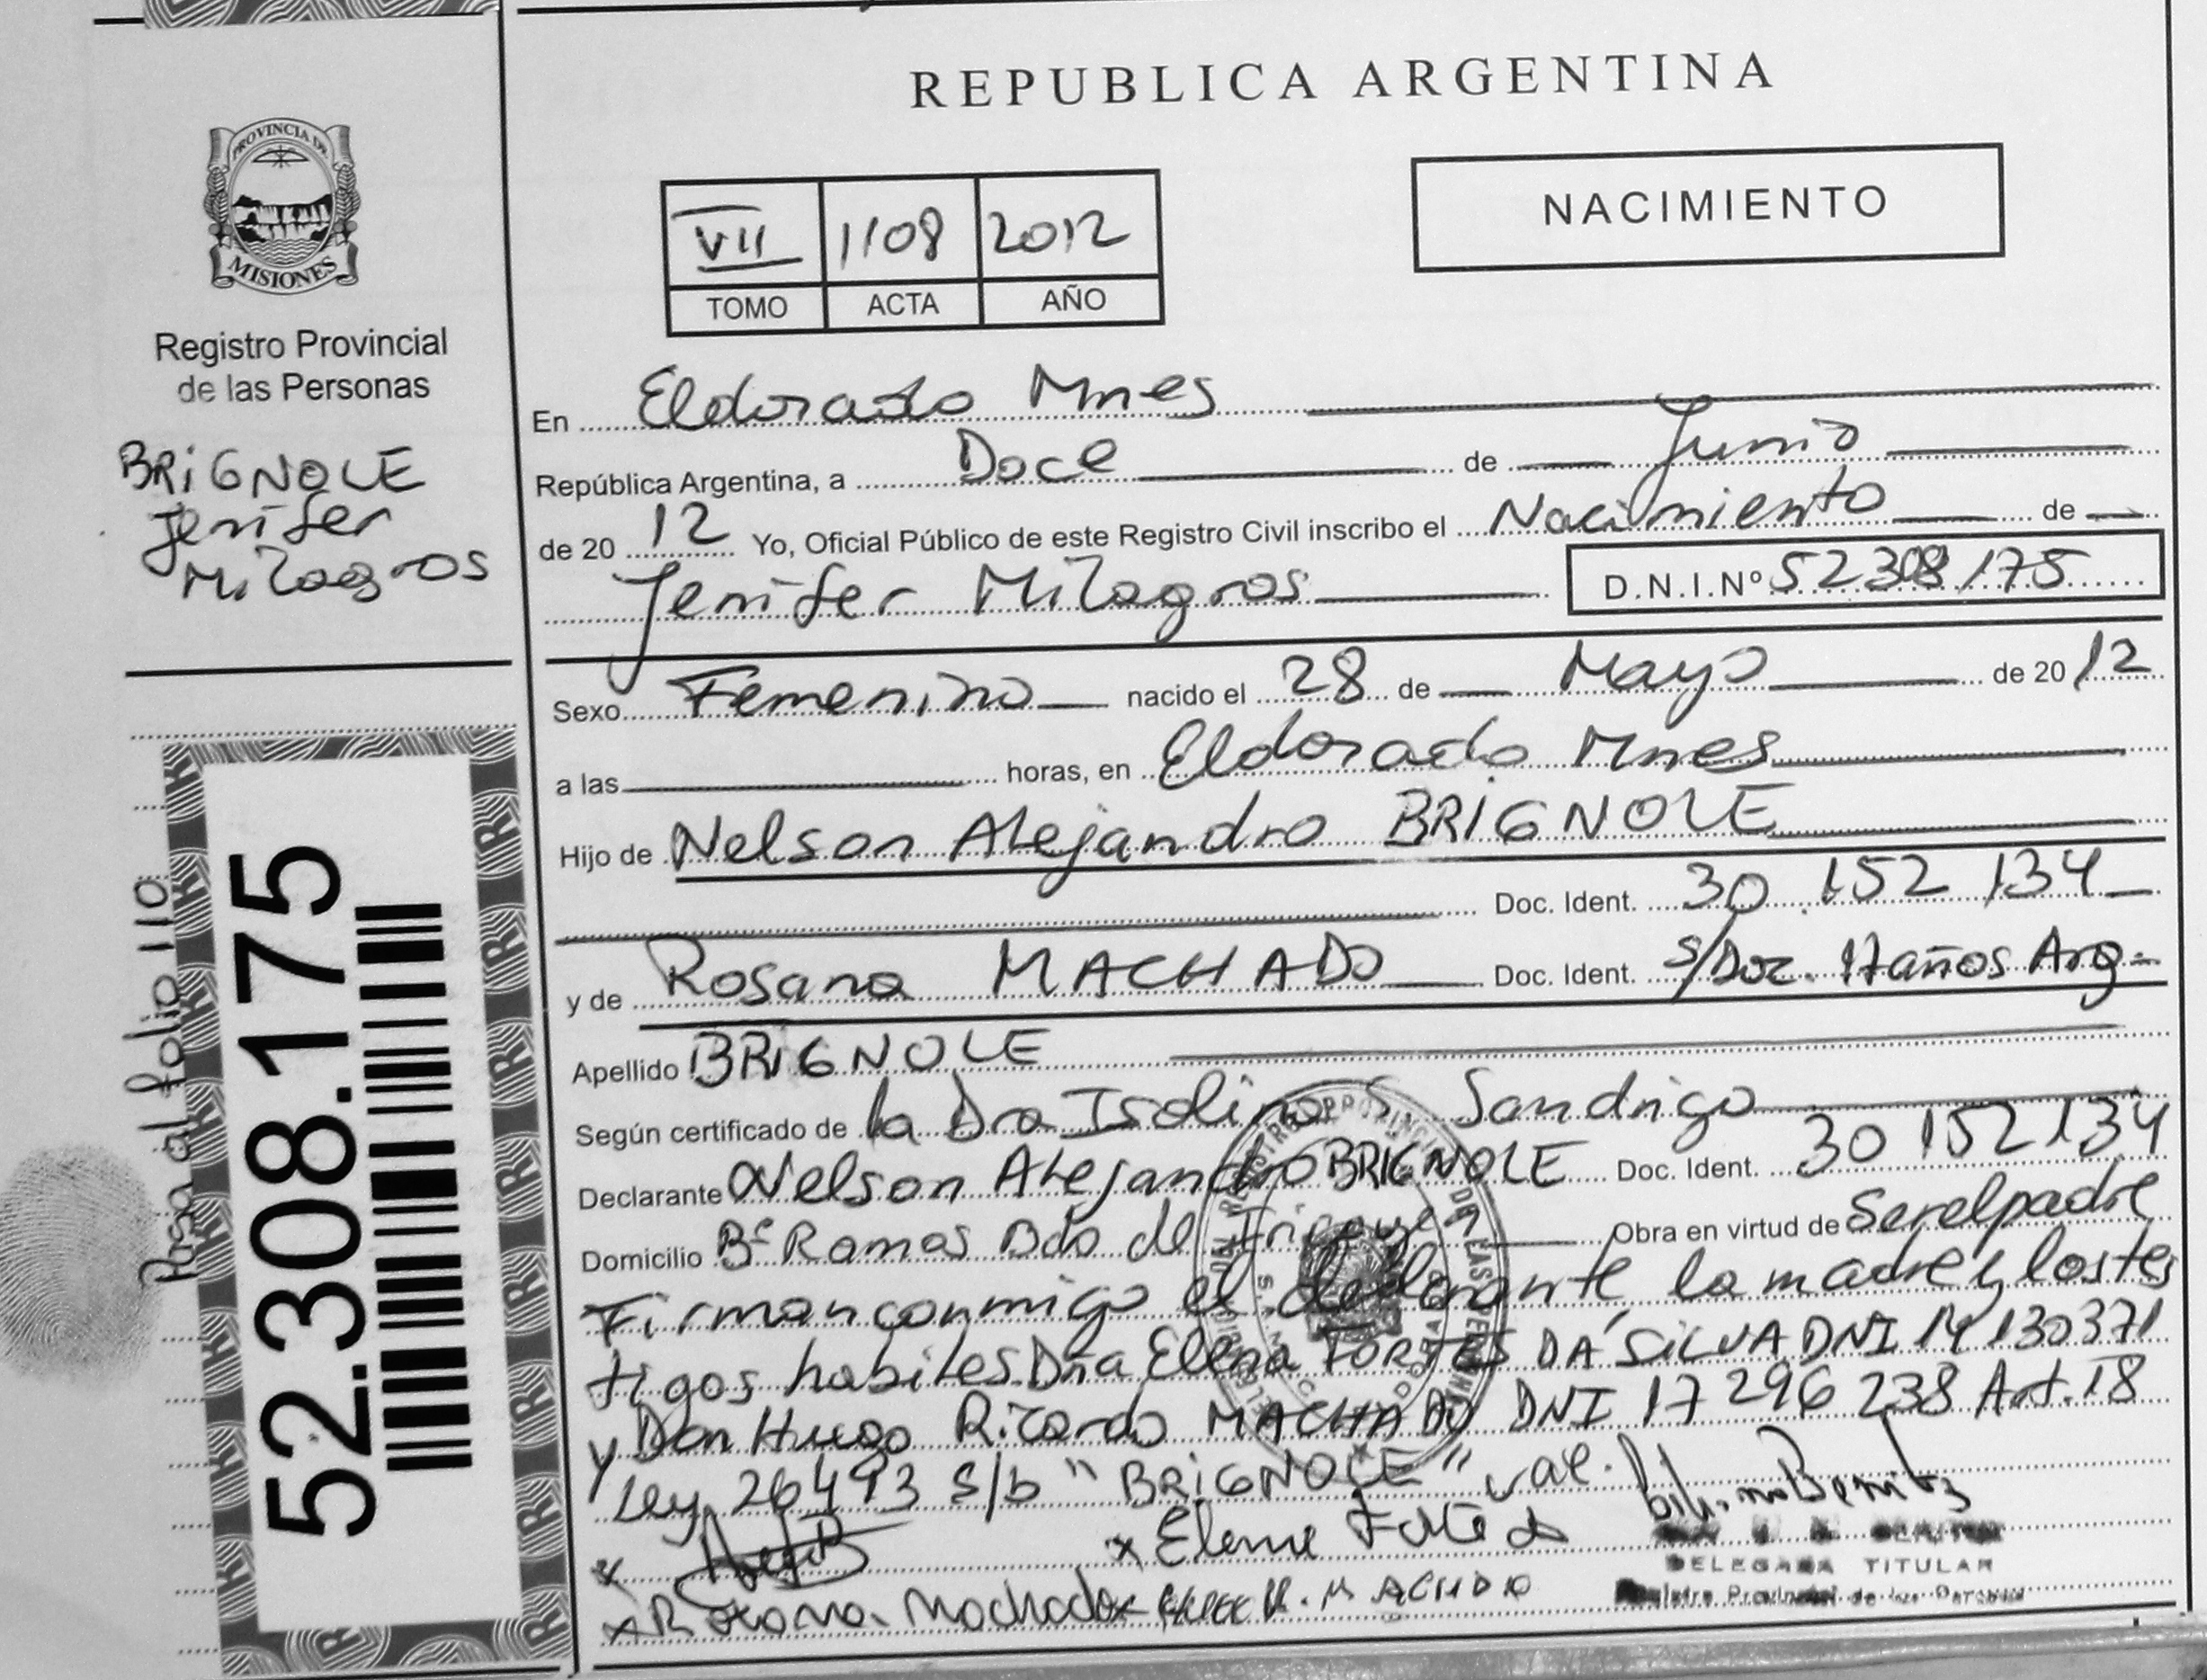 REPUBLICA ARGENTINA
PROVINCIA DE
MISIONES
Registro Provincial
de las Personas
BRIGNOLE
Jenifer
Milagros
NACIMIENTO
VII 1108 2012
TOMO ACTA AÑO
En Eldorado Mnes
República Argentina, a Doce de Junio
de 20 12 Yo, Oficial Público de este Registro Civil inscribo el Nacimiento de
Jenifer Milagros D.N.I.Nº 52308175
Sexo Femenino nacido el 28 de Mayo de 20 12
a las horas, en Eldorado Mnes
Hijo de Nelson Alejandro BRIGNOLE
Doc. Ident. 30.152 134
y de Rosana MACHADO Doc. Ident. s/Doc. 17 años Arg-
Apellido BRIGNOLE
Según certificado de la Dra Isolina S Sandrigo
Declarante Nelson Alejandro BRIGNOLE Doc. Ident. 30 152 134
Domicilio Bº Ramas Bdo de Irigoyen Obra en virtud de Ser el padre
Firman conmigo el declarante la madre y los tes
tigos habiles Dña Elena FORTES DA SILVA DNI 14 130371
y Don Hugo Ricardo MACHADO DNI 17 296 238 Art. 18
Ley 26413 s/b "BRIGNOLE" vale.
x x Elena
x Rosana Machado x R. MACHADO
DELEGADA TITULAR
Registro Provincial de las Personas
Pasa al folio 110
52.308.175